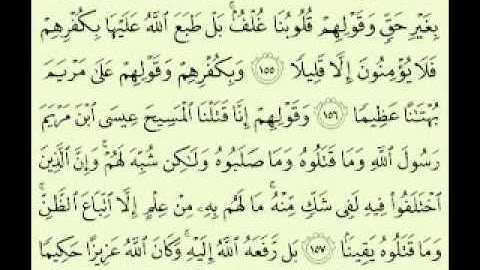 بِغَيْرِ حَقٍّ وَقَوْلِهِمْ قُلُوبُنَا غُلْفٌۢ ۚ بَلْ طَبَعَ ٱللَّهُ عَلَيْهَا بِكُفْرِهِمْ
فَلَا يُؤْمِنُونَ إِلَّا قَلِيلًا ١٥٥ وَبِكُفْرِهِمْ وَقَوْلِهِمْ عَلَىٰ مَرْيَمَ
بُهْتَٰنًا عَظِيمًا ١٥٦ وَقَوْلِهِمْ إِنَّا قَتَلْنَا ٱلْمَسِيحَ عِيسَى ٱبْنَ مَرْيَمَ
رَسُولَ ٱللَّهِ وَمَا قَتَلُوهُ وَمَا صَلَبُوهُ وَلَٰكِن شُبِّهَ لَهُمْ ۚ وَإِنَّ ٱلَّذِينَ
ٱخْتَلَفُوا۟ فِيهِ لَفِى شَكٍّ مِّنْهُ ۚ مَا لَهُم بِهِۦ مِنْ عِلْمٍ إِلَّا ٱتِّبَاعَ ٱلظَّنِّ ۚ
وَمَا قَتَلُوهُ يَقِينًۢا ١٥٧ بَل رَّفَعَهُ ٱللَّهُ إِلَيْهِ ۚ وَكَانَ ٱللَّهُ عَزِيزًا حَكِيمًا